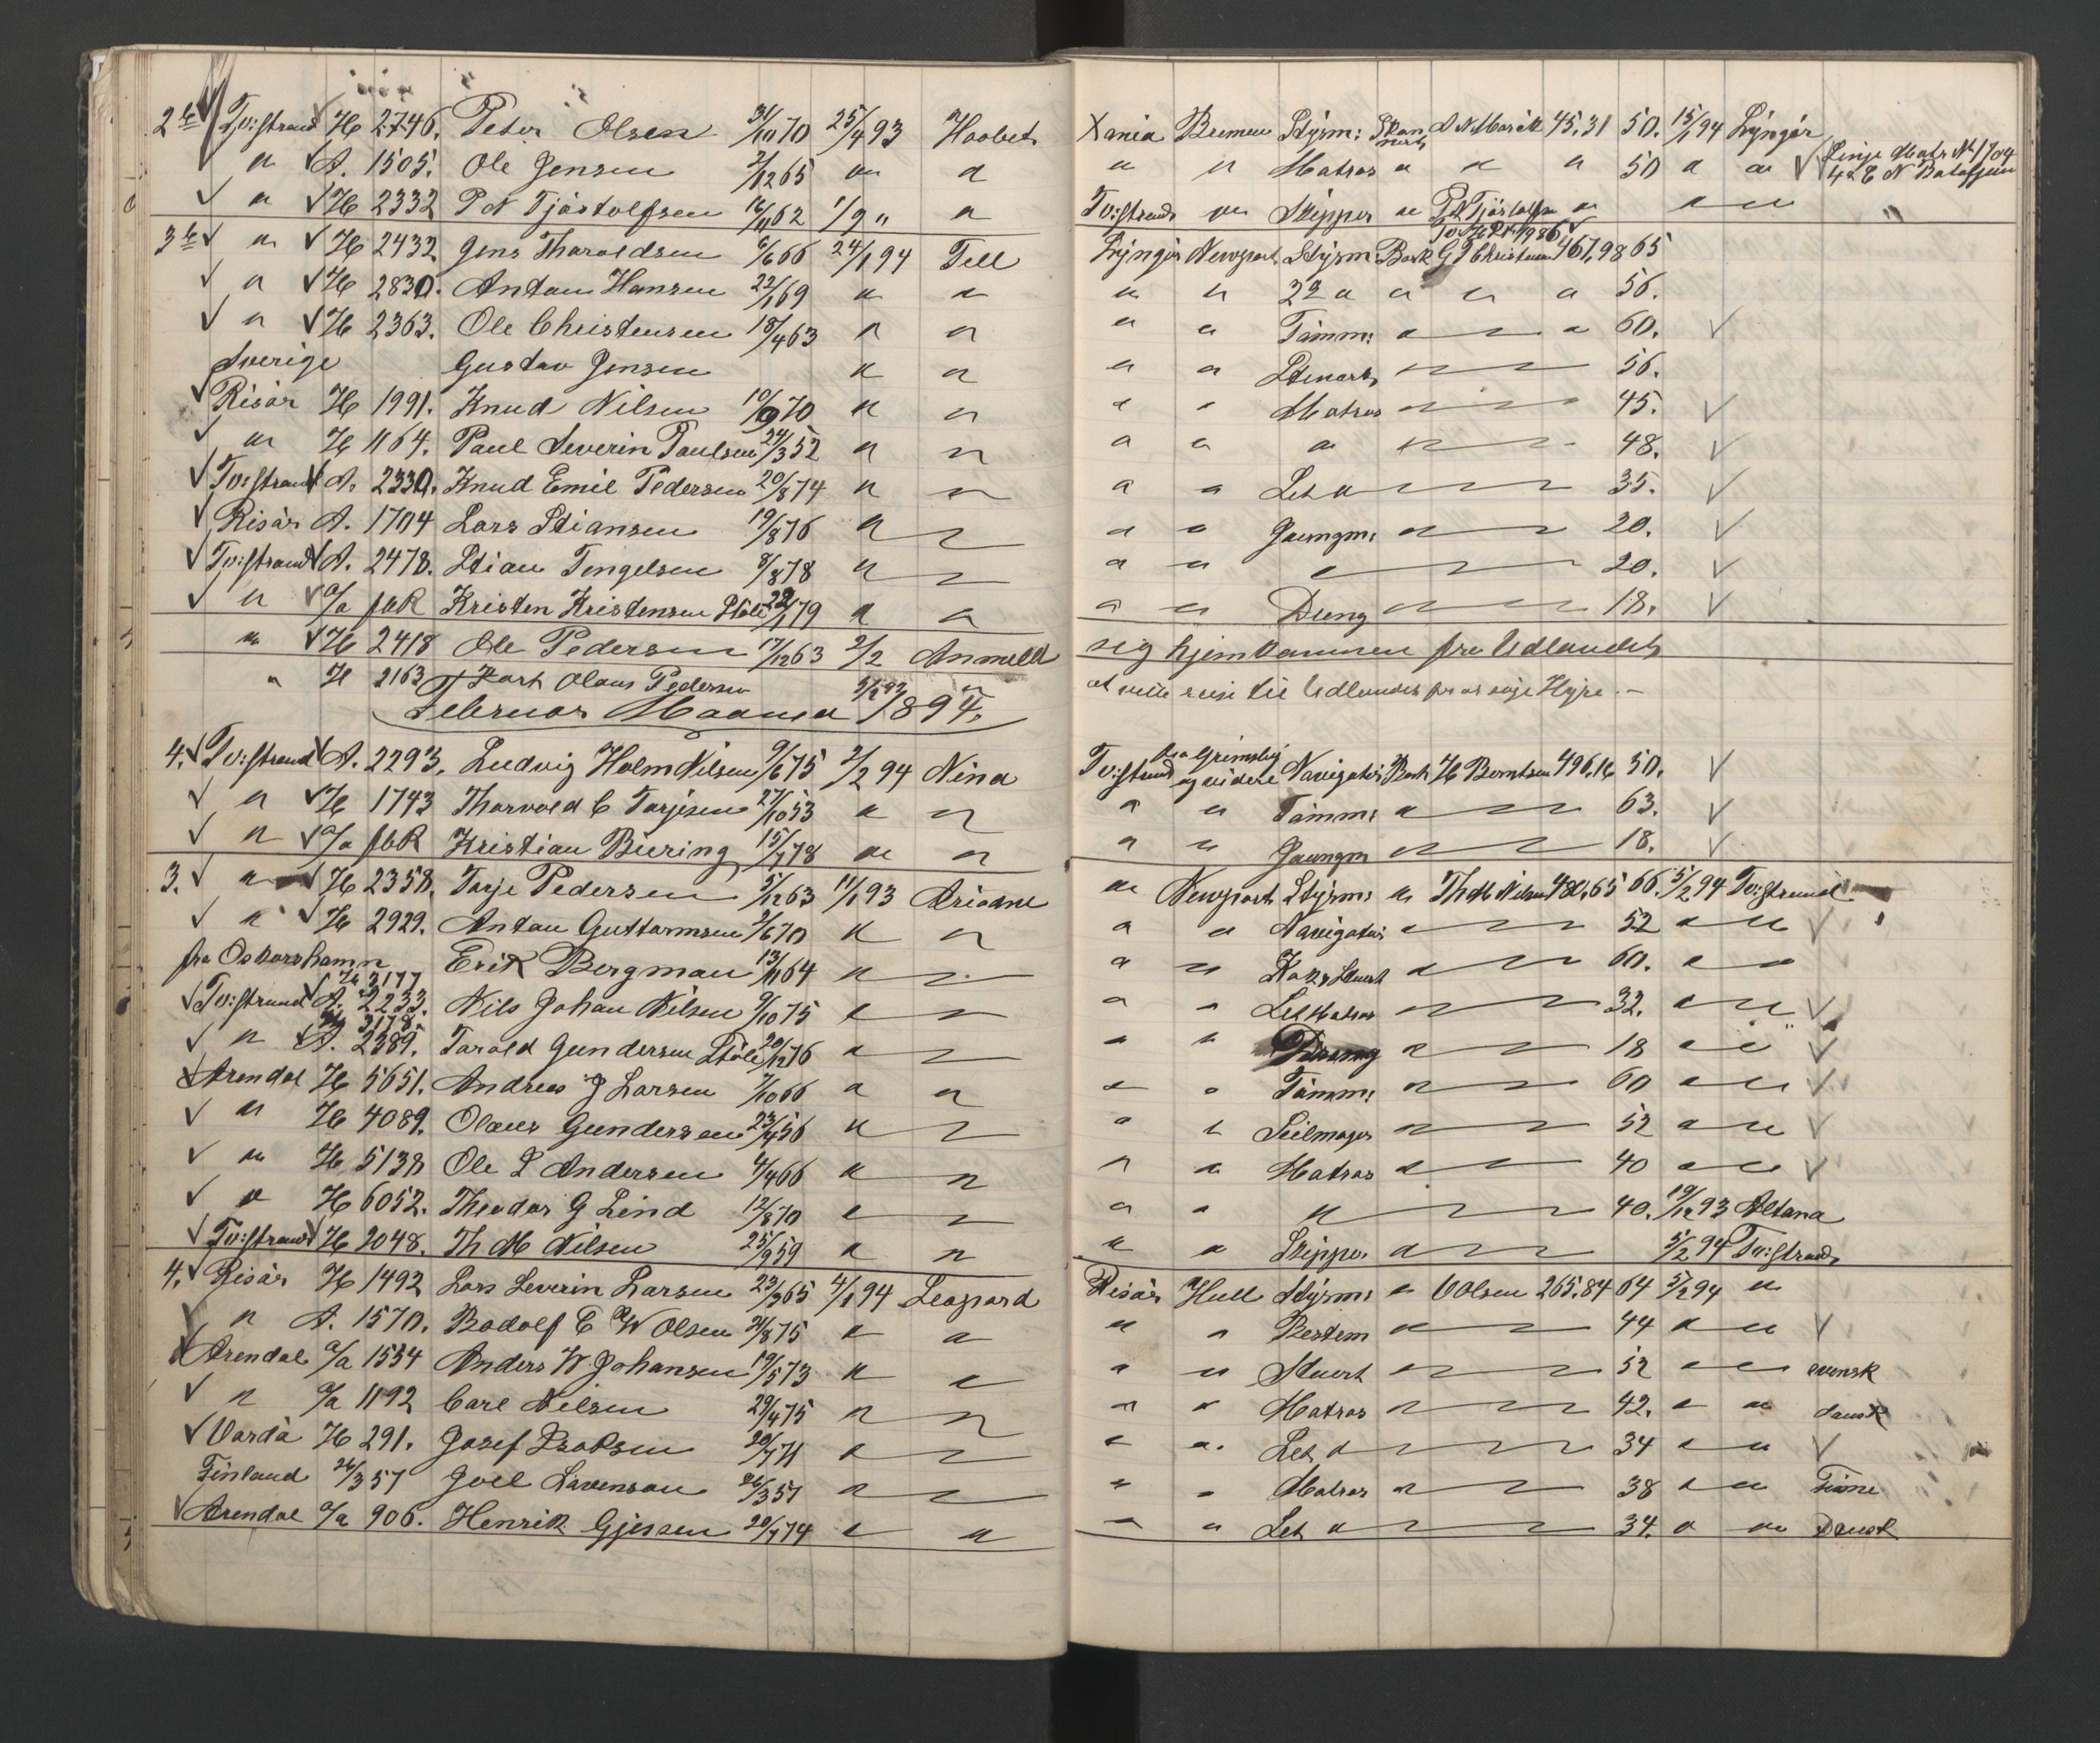 2 Tv:strand H 2746. Peter Olsen 31/10 70 25/4 93 Haabet
" A. 1505. Ole Jensen 2/12 65 " "
" H 2332 P N Tjøstolfsen 16/11 62 1/9 " "
3 " H 2432 Jens Tharoldsen 6/6 66 24/1 94 Tell
" H 2830. Anton Hansen 22/1 69 " "
" H 2363. Ole Christensen 18/4 63 " "
Sverige Gustav Jensen " "
Risør H 1991. Knud Nilsen 10/9 70 " "
" H 1164. Paul Severin Paulsen 24/3 52 " "
Tv:strand A. 2330. Knud Emil Pedersen 20/8 74 " "
Risør A. 1704 Lars Stiansen 19/8 76 " "
Tv:strand A. 2478. Stian Tengelsen 8/8 78 " "
" a/a Kristen Kristensen Støle 22/1 79 " "
" H 2418 Ole Pedersen 17/12 63 2/2 Anmeldt
" H 2163 Olaus Pedersen
Februar Maaned 1894.
4. Tv:strand A. 2293. Ludvig Holm Nilsen 9/6 75 2/2 94 Nina
" H 1743 Thorvald C Tarjesen 27/10 53 " "
" a/a Kristian Buring 15/7 78 " "
3. " H 2358. Tarje Pedersen 5/12 63 11/1 93 Ariadne
" H 2929. Anton Guttormsen 2/6 70 " "
fra Oskarshamn Erik Bergman 13/11 64 " "
H 3177
Tv:strand A. 2233. Nils Johan Nilsen 9/10 75 " "
3178.
" A. 2389. Tarald Gundersen Støle 20/12 76 " "
Arendal H 5651. Andreas J Larsen 7/10 66 " "
" H 4089. Olaus Gundersen 23/4 56 " "
" H 5138 Ole L Andersen 4/4 66 " "
" H 6052. Theodor G Lind 12/8 70 " "
Tv:strand H 2048. Th M Nilsen 25/9 59 " "
4. Risør H 1492 Lars Severin Larsen 23/3 65 4/1 94 Leopard
" A. 1570. Bodolf E W Olsen 31/8 75 " "
Arendal a/a 1554 Anders W Johansen 19/5 73 " "
" a/a 1192 Carl Nilsen 29/4 75 " "
Vardø H 291. Josef 20/7 71 " "
Finland 26/3 57 Joel 26/3 57 " "
Arendal a/a 906. Henrik Gjessen 20/7 74 " "
Xania Bremen Styrm: 45.31 50. 15/1 94 Lyngør
" " Matros " " " 50 " "
Tv:strand " Skipper " P N Tjøstolfsen " " "
Lyngør Newport Styrm Bark G T Christensen 467,98 65
" " 2d " " " " 56.
" " Tømm: " " 60.
" " Stewart " 56.
" " Matros " 45.
" " " " 48.
" " Let " 35.
" " Jungm: " 20.
" " " 20.
" " Dæng " 18.
sig hjemkommen fra Udlandet
at ville reise til Udlandet for at søge Hyre.
fra Grimsby
Tv:strand og videre Navigatør Bark H Berntsen 496,16 50.
" " Tømm: " 63.
" " Jungm " 18.
" Newport Styrm: " Th M Nilsen 480,65 66. 5/2 94 Tv:strand
" " Navigatør " 52 " "
" " Kok & Stuert " 60. " "
" " Let Matros " 32. " "
" " " 18 " "
" " Tømm: " 60 " "
" " Seilmager " 52 " "
" " Matros " 40 " "
" " " 40. 19/12 93 Altana
" " Skipper. " 5/2 94 Tv:strand
Risør Hull Styrm: " O Olsen 265.84 64 5/2 94 "
" " Bestem " 44 " "
" " Stuert " 52 " " svensk
" " Matros " 42. " " dansk
" " Let " 34 " "
" " Matros " 38 " " Finne
" " Let " 34. " " Dansk